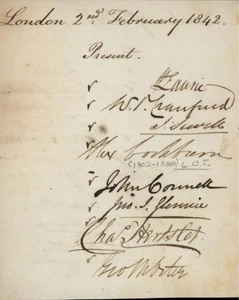 London 2nd February 1842.
Present.
Laurie
W. Crawford
J. Sewell
Alex Cockburn
(1802-1880) L.C.J.
John Connell
Jno. S. Glennie
Chas. Hertslet
Geo Webster